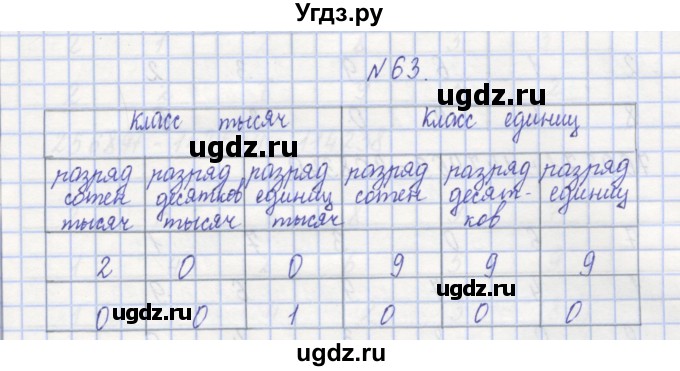 Угдз.ру
№63.
ugdz.ru
класс тысяч класс единиц
ugdz.ru
разряд сотен тысяч разряд десятков тысяч разряд единиц тысяч разряд сотен разряд десят-ков разряд единиц
2 0 0 9 9 9
ugdz.ru ugdz.ru
0 0 1 0 0 0
ugdz.ru